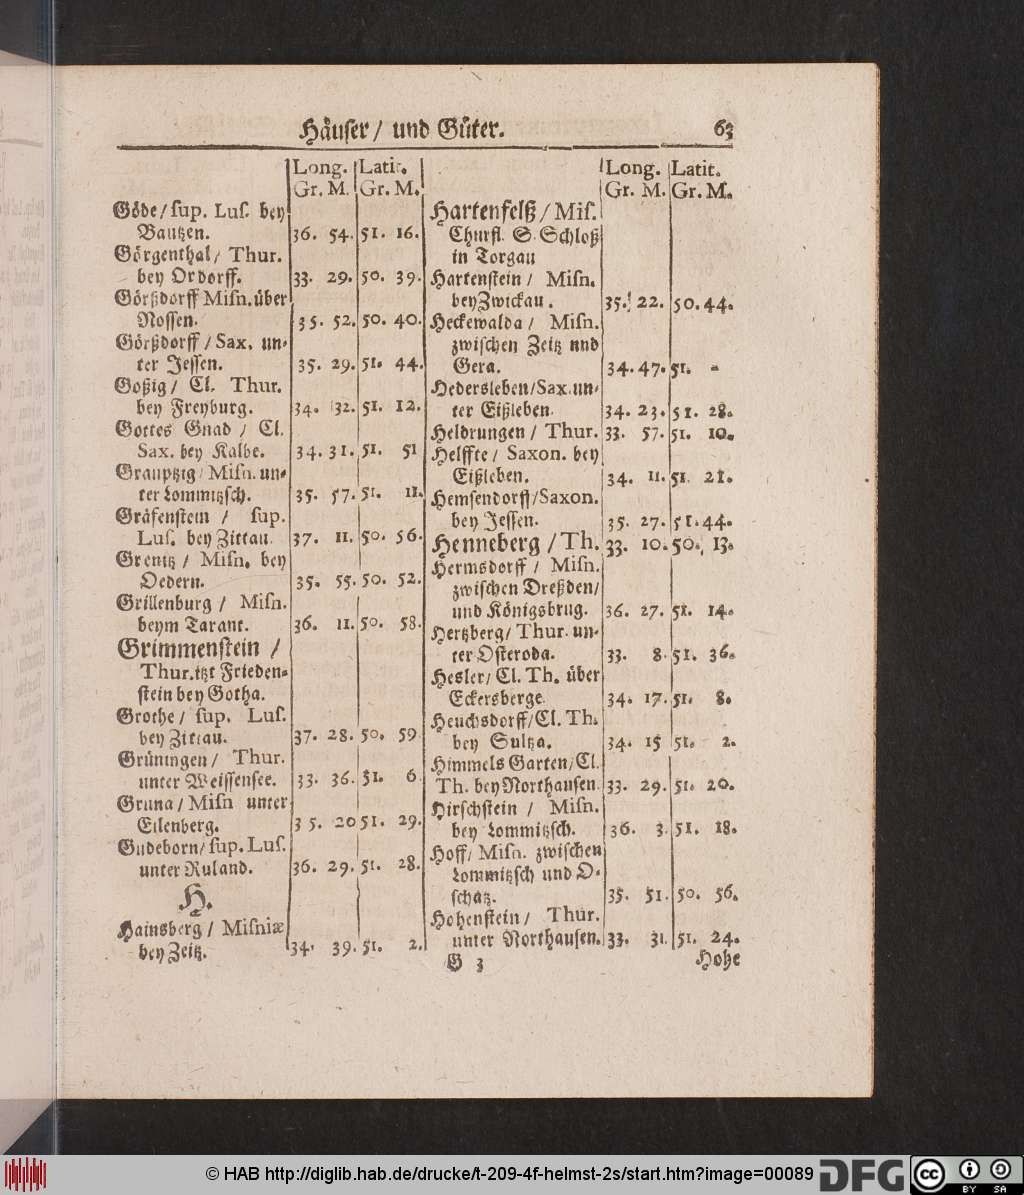 Häuser / und Güter. 63
Long. Latit.
Gr. M. Gr. M.
Göde / sup. Lus. bey
Bautzen. 36. 54. 51. 16.
Görgenthal / Thur.
bey Ordorff. 33. 29. 50. 39.
Görßdorff Misn. über
Nossen. 35. 52. 50. 40.
Görßdorff / Sax. un-
ter Jessen. 35. 29. 51. 44.
Goßig / Cl. Thur.
bey Freyburg. 34. 32. 51. 12.
Gottes Gnad / Cl.
Sax. bey Kalbe. 34. 31. 51. 51
Grauptzig / Misn. un-
ter Lommitzsch. 35. 57. 51. 11.
Gräfenstein / sup.
Lus. bey Zittau. 37. 11. 50. 56.
Grentz / Misn. bey
Oedern. 35. 55. 50. 52.
Grillenburg / Misn.
beym Tarant. 36. 11. 50. 58.
Grimmenstein /
Thur. itzt Frieden-
stein bey Gotha.
Grothe / sup. Lus.
bey Zittau. 37. 28. 50. 59
Grüningen / Thur.
unter Weissensee. 33. 36. 51. 6
Gruna / Misn unter
Eilenberg. 35. 20 51. 29.
Gudeborn / sup. Lus.
unter Ruland. 36. 29. 51. 28.
H.
Hainsberg / Misniæ
bey Zeitz. 34. 39. 51. 2.
Long. Latit.
Gr. M. Gr. M.
Hartenfelß / Mis.
Churfl. S. Schloß
in Torgau
Hartenstein / Misn.
bey Zwickau. 35. 22. 50. 44.
Heckewalda / Misn.
zwischen Zeitz und
Gera. 34. 47. 51. -
Hedersleben / Sax. un-
ter Eißleben. 34. 23. 51. 28.
Heldrungen / Thur. 33. 57. 51. 10.
Helffte / Saxon. bey
Eißleben. 34. 11. 51. 21.
Hemsendorff / Saxon.
bey Jessen. 35. 27. 51. 44.
Henneberg / Th. 33. 10. 50. 13.
Hermsdorff / Misn.
zwischen Dreßden /
und Königsbrug. 36. 27. 51. 14.
Hertzberg / Thur. un-
ter Osteroda. 33. 8. 51. 36.
Hesler / Cl. Th. über
Eckersberge. 34. 17. 51. 8.
Heuchsdorff / Cl. Th.
bey Sultza. 34. 15 51. 2.
Himmels Garten / Cl.
Th. bey Northausen. 33. 29. 51. 20.
Hirschstein / Misn.
bey Lommitzsch. 36. 3. 51. 18.
Hoff / Misn. zwischen
Lommitzsch und O-
schatz. 35. 51. 50. 56.
Hohenstein / Thur.
unter Northausen. 33. 31. 51. 24.
G 3 Hohe
© HAB http://diglib.hab.de/drucke/t-209-4f-helmst-2s/start.htm?image=00089
DFG
cc BY SA